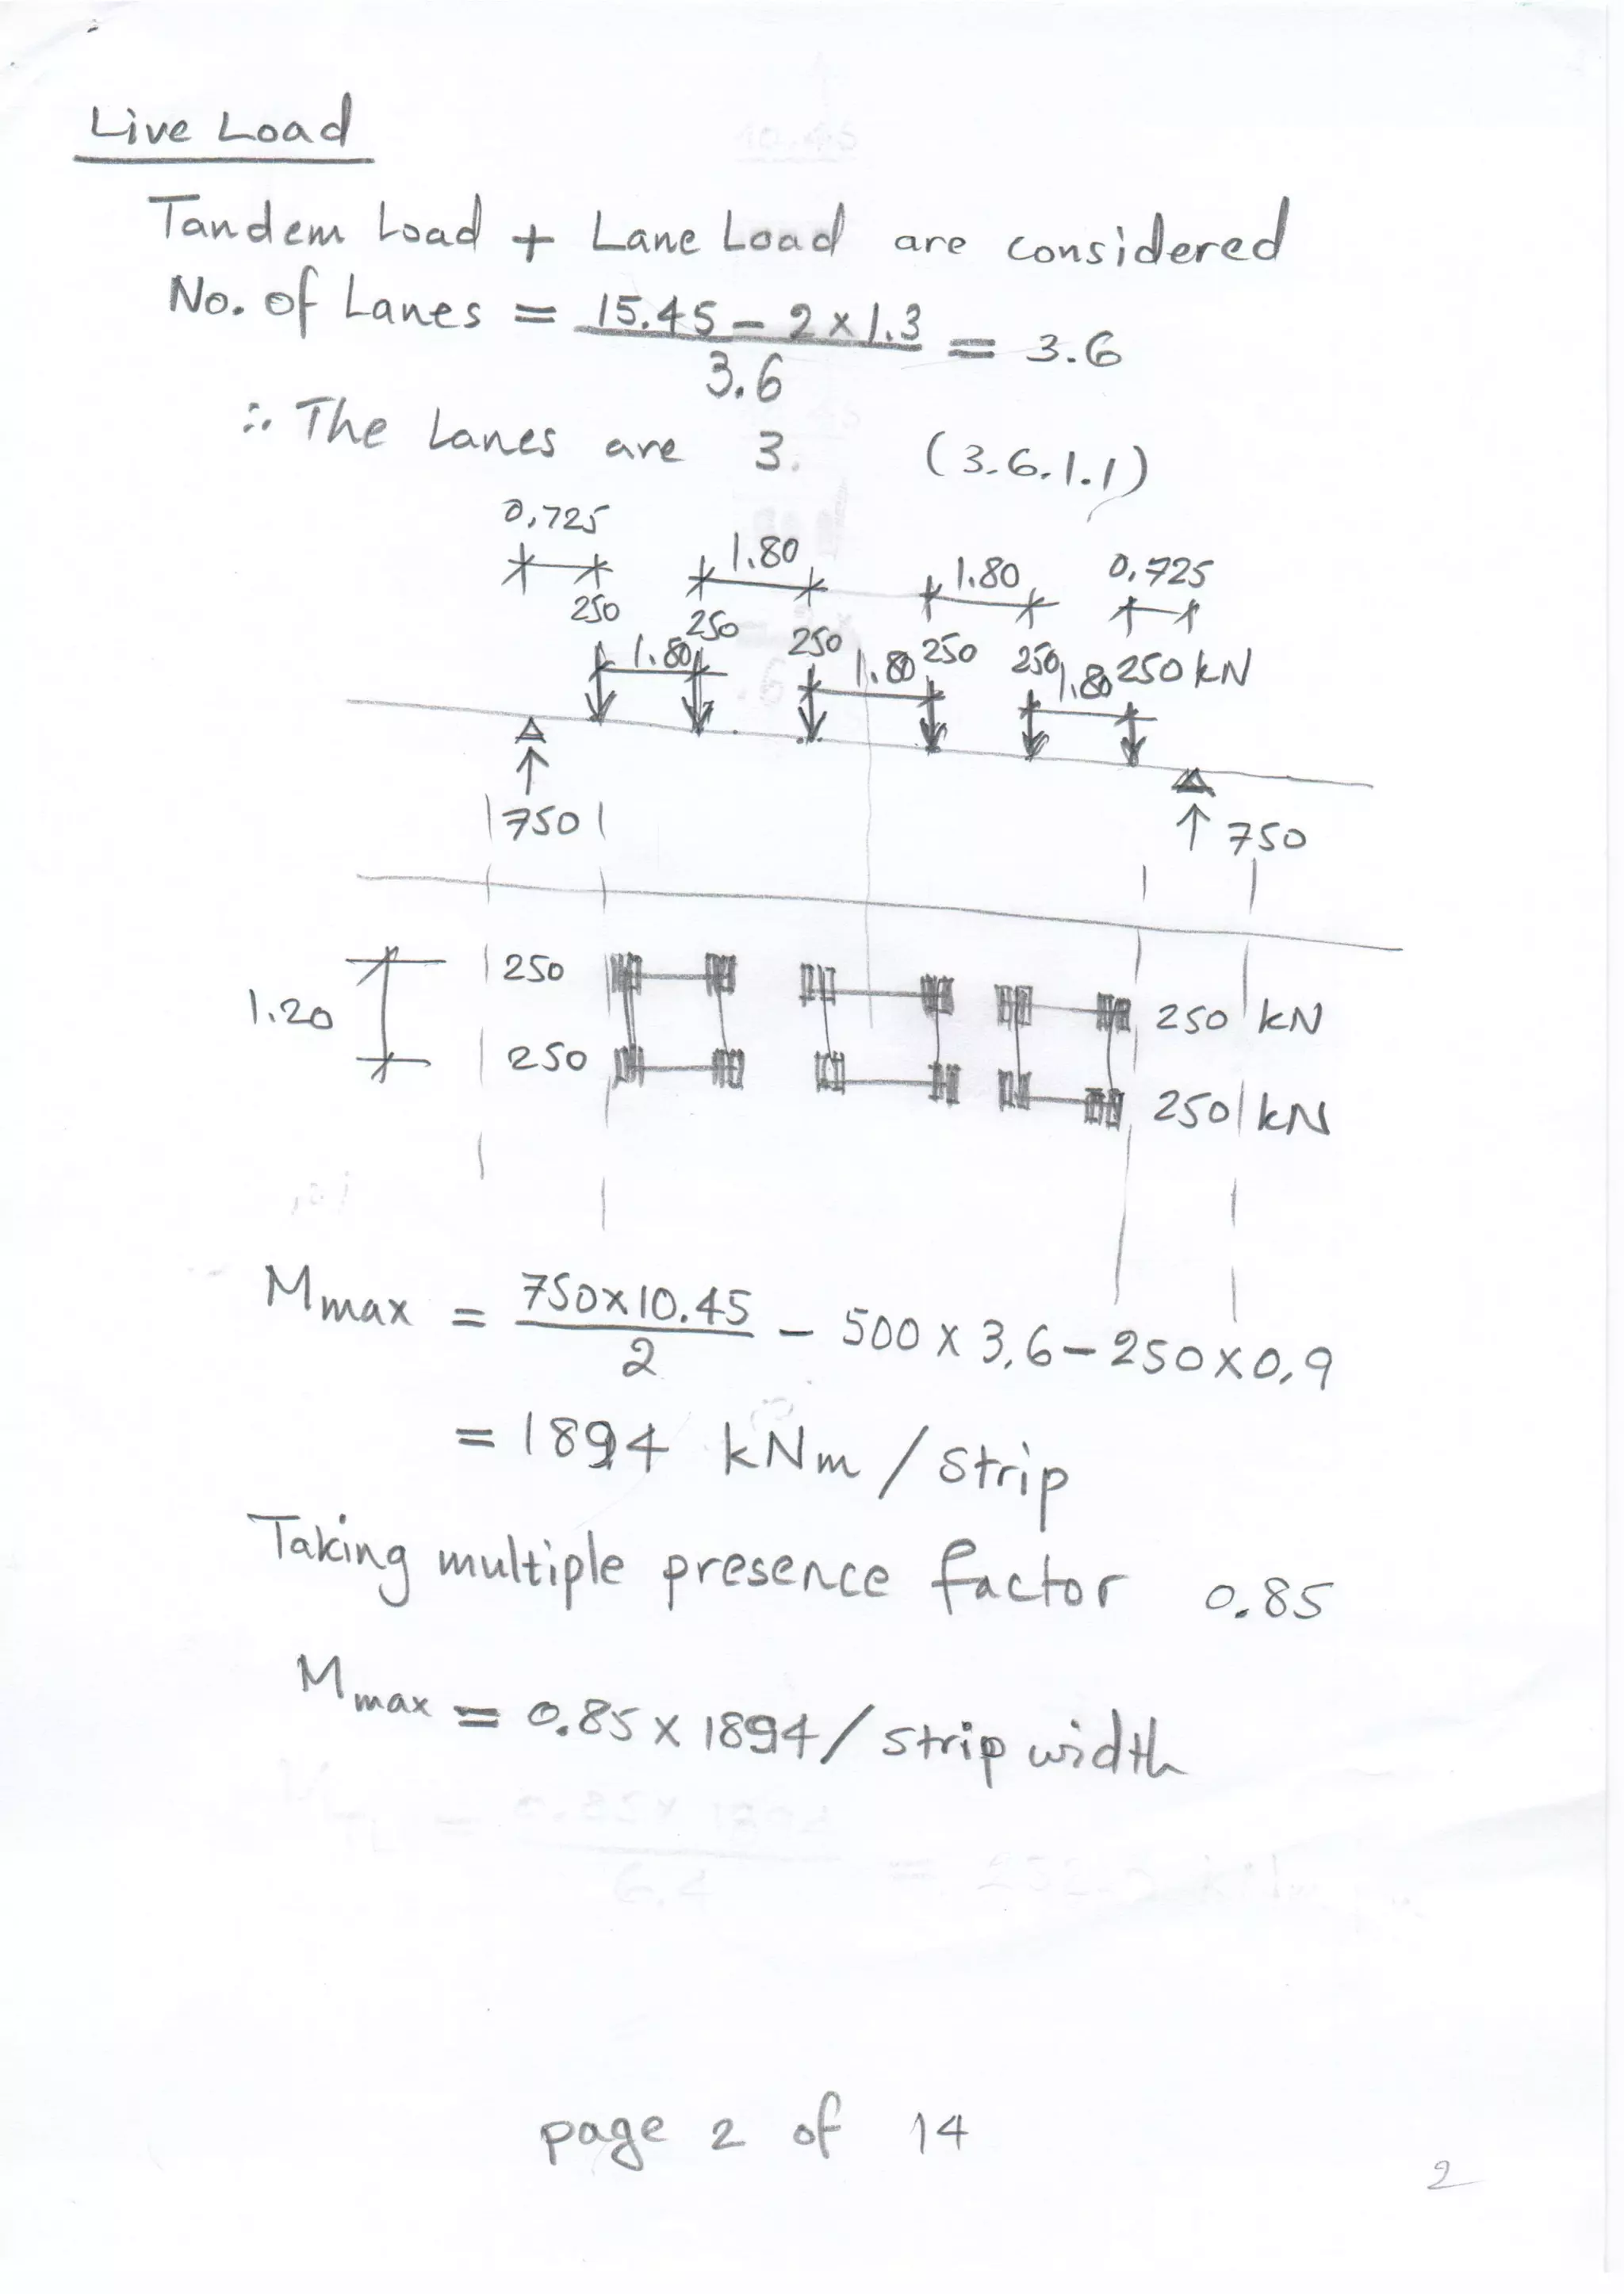 Live Load
Tandem Load + Lane Load are considered
No. of Lanes = 15.45 - 2 x 1.3 / 3.6 = 3.6
∴ The Lanes are 3. (3.6.1.1)
0,725
1.80
1.80
0,725
250
250
250
250
250
250 kN
1.80
1.80
1.80
750
750
1.20
250
250 kN
250
250 kN
Mmax = 750x10.45 / 2 - 500 x 3,6 - 250x0,9
= 1894 kNm / strip
Taking multiple presence factor 0.85
Mmax = 0.85 x 1894 / strip width
page 2 of 14
2